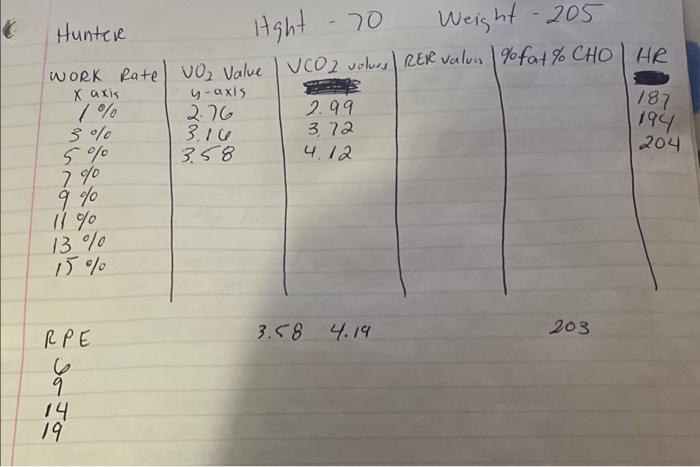 Hunter Hght - 70 Weight - 205
WORK Rate VO2 Value VCO2 values RER values % fat % CHO HR
x axis y-axis
1 % 2.76 2.99 187
3 % 3.16 3.72 194
5 % 3.58 4.12 204
7 %
9 %
11 %
13 %
15 %
RPE 3.58 4.19 203
6
9
14
19